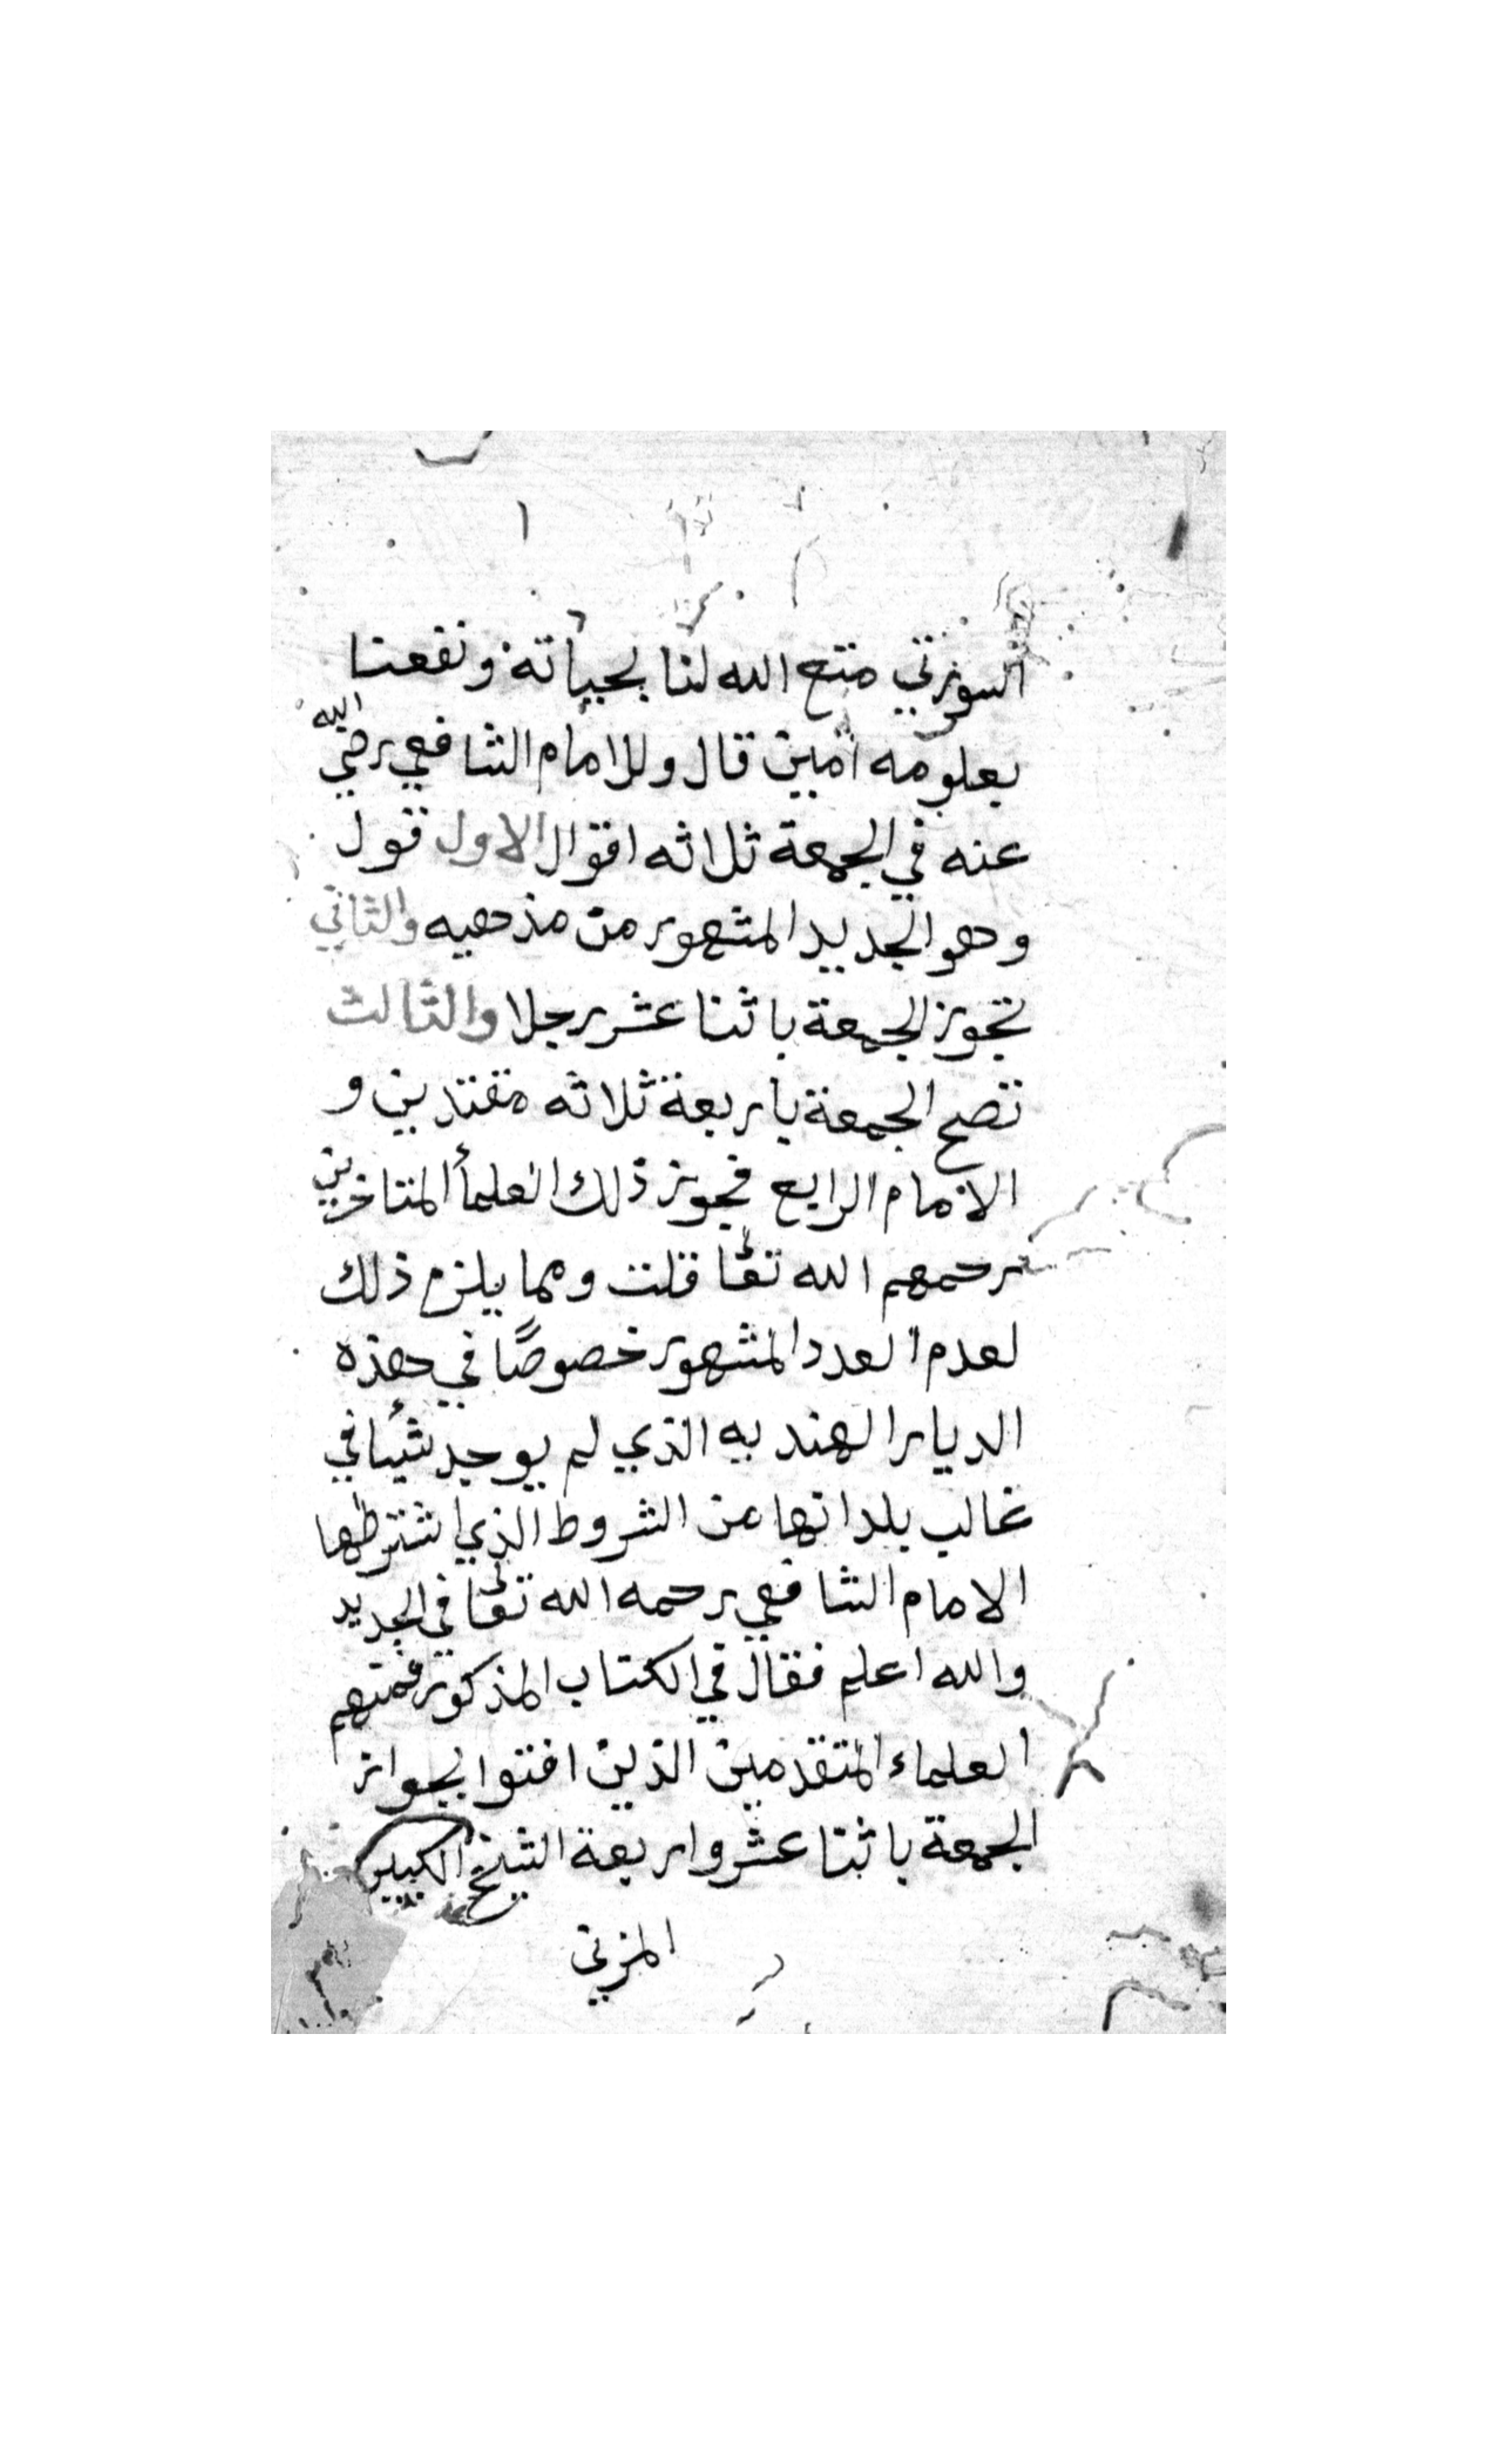 السورتي متع الله لنا بحياته ونفعنا
بعلومه آمين قال وللامام الشافعي رضي الله
عنه في الجمعة ثلاثه اقوال الاول قول
وهو الجديد المشهور من مذهبه والثاني
تجوز الجمعة باثنا عشر رجلا والثالث
تصح الجمعة باربعة ثلاثه مقتدين و
الامام الرابع فجوز ذلك العلمأ المتاخرين
رحمهم الله تعا قلت ومما يلزم ذلك
لعدم العدد المشهور خصوصًا في هذه
الديار الهنديه الذي لم يوجد شيئا في
غالب بلدانها من الشروط الذي اشترطها
الامام الشافعي رحمه الله تعا في الجديد
والله اعلم فقال في الكتاب المذكور فمنهم
العلماء المتقدمين الذين افتوا بجواز
الجمعة باثنا عشر واربعة الشيخ الكبير
المزني